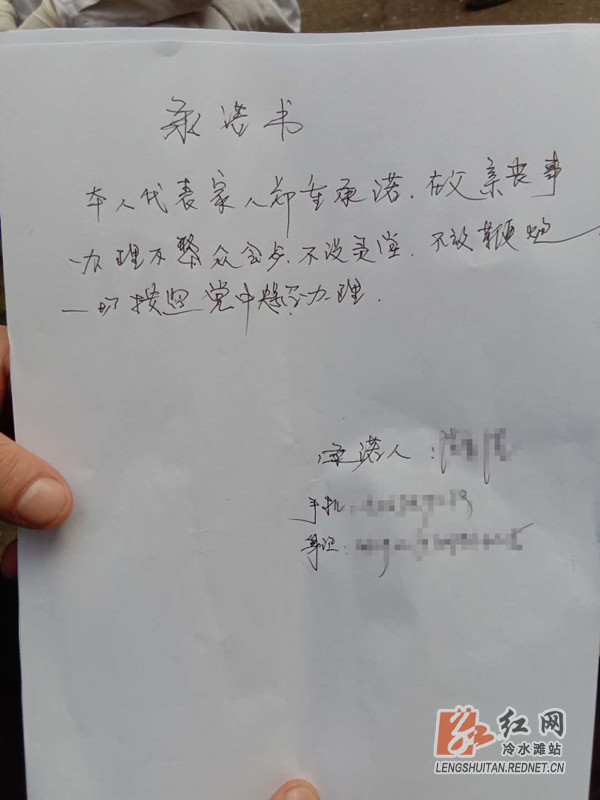 承诺书
本人代表家人郑重承诺.在父亲丧事
办理不聚众会步.不设灵堂.不放鞭炮
一切按照党中央办理.
承诺人:
手机:
身证:
红网
冷水滩站
LENGSHUITAN.REDNET.CN